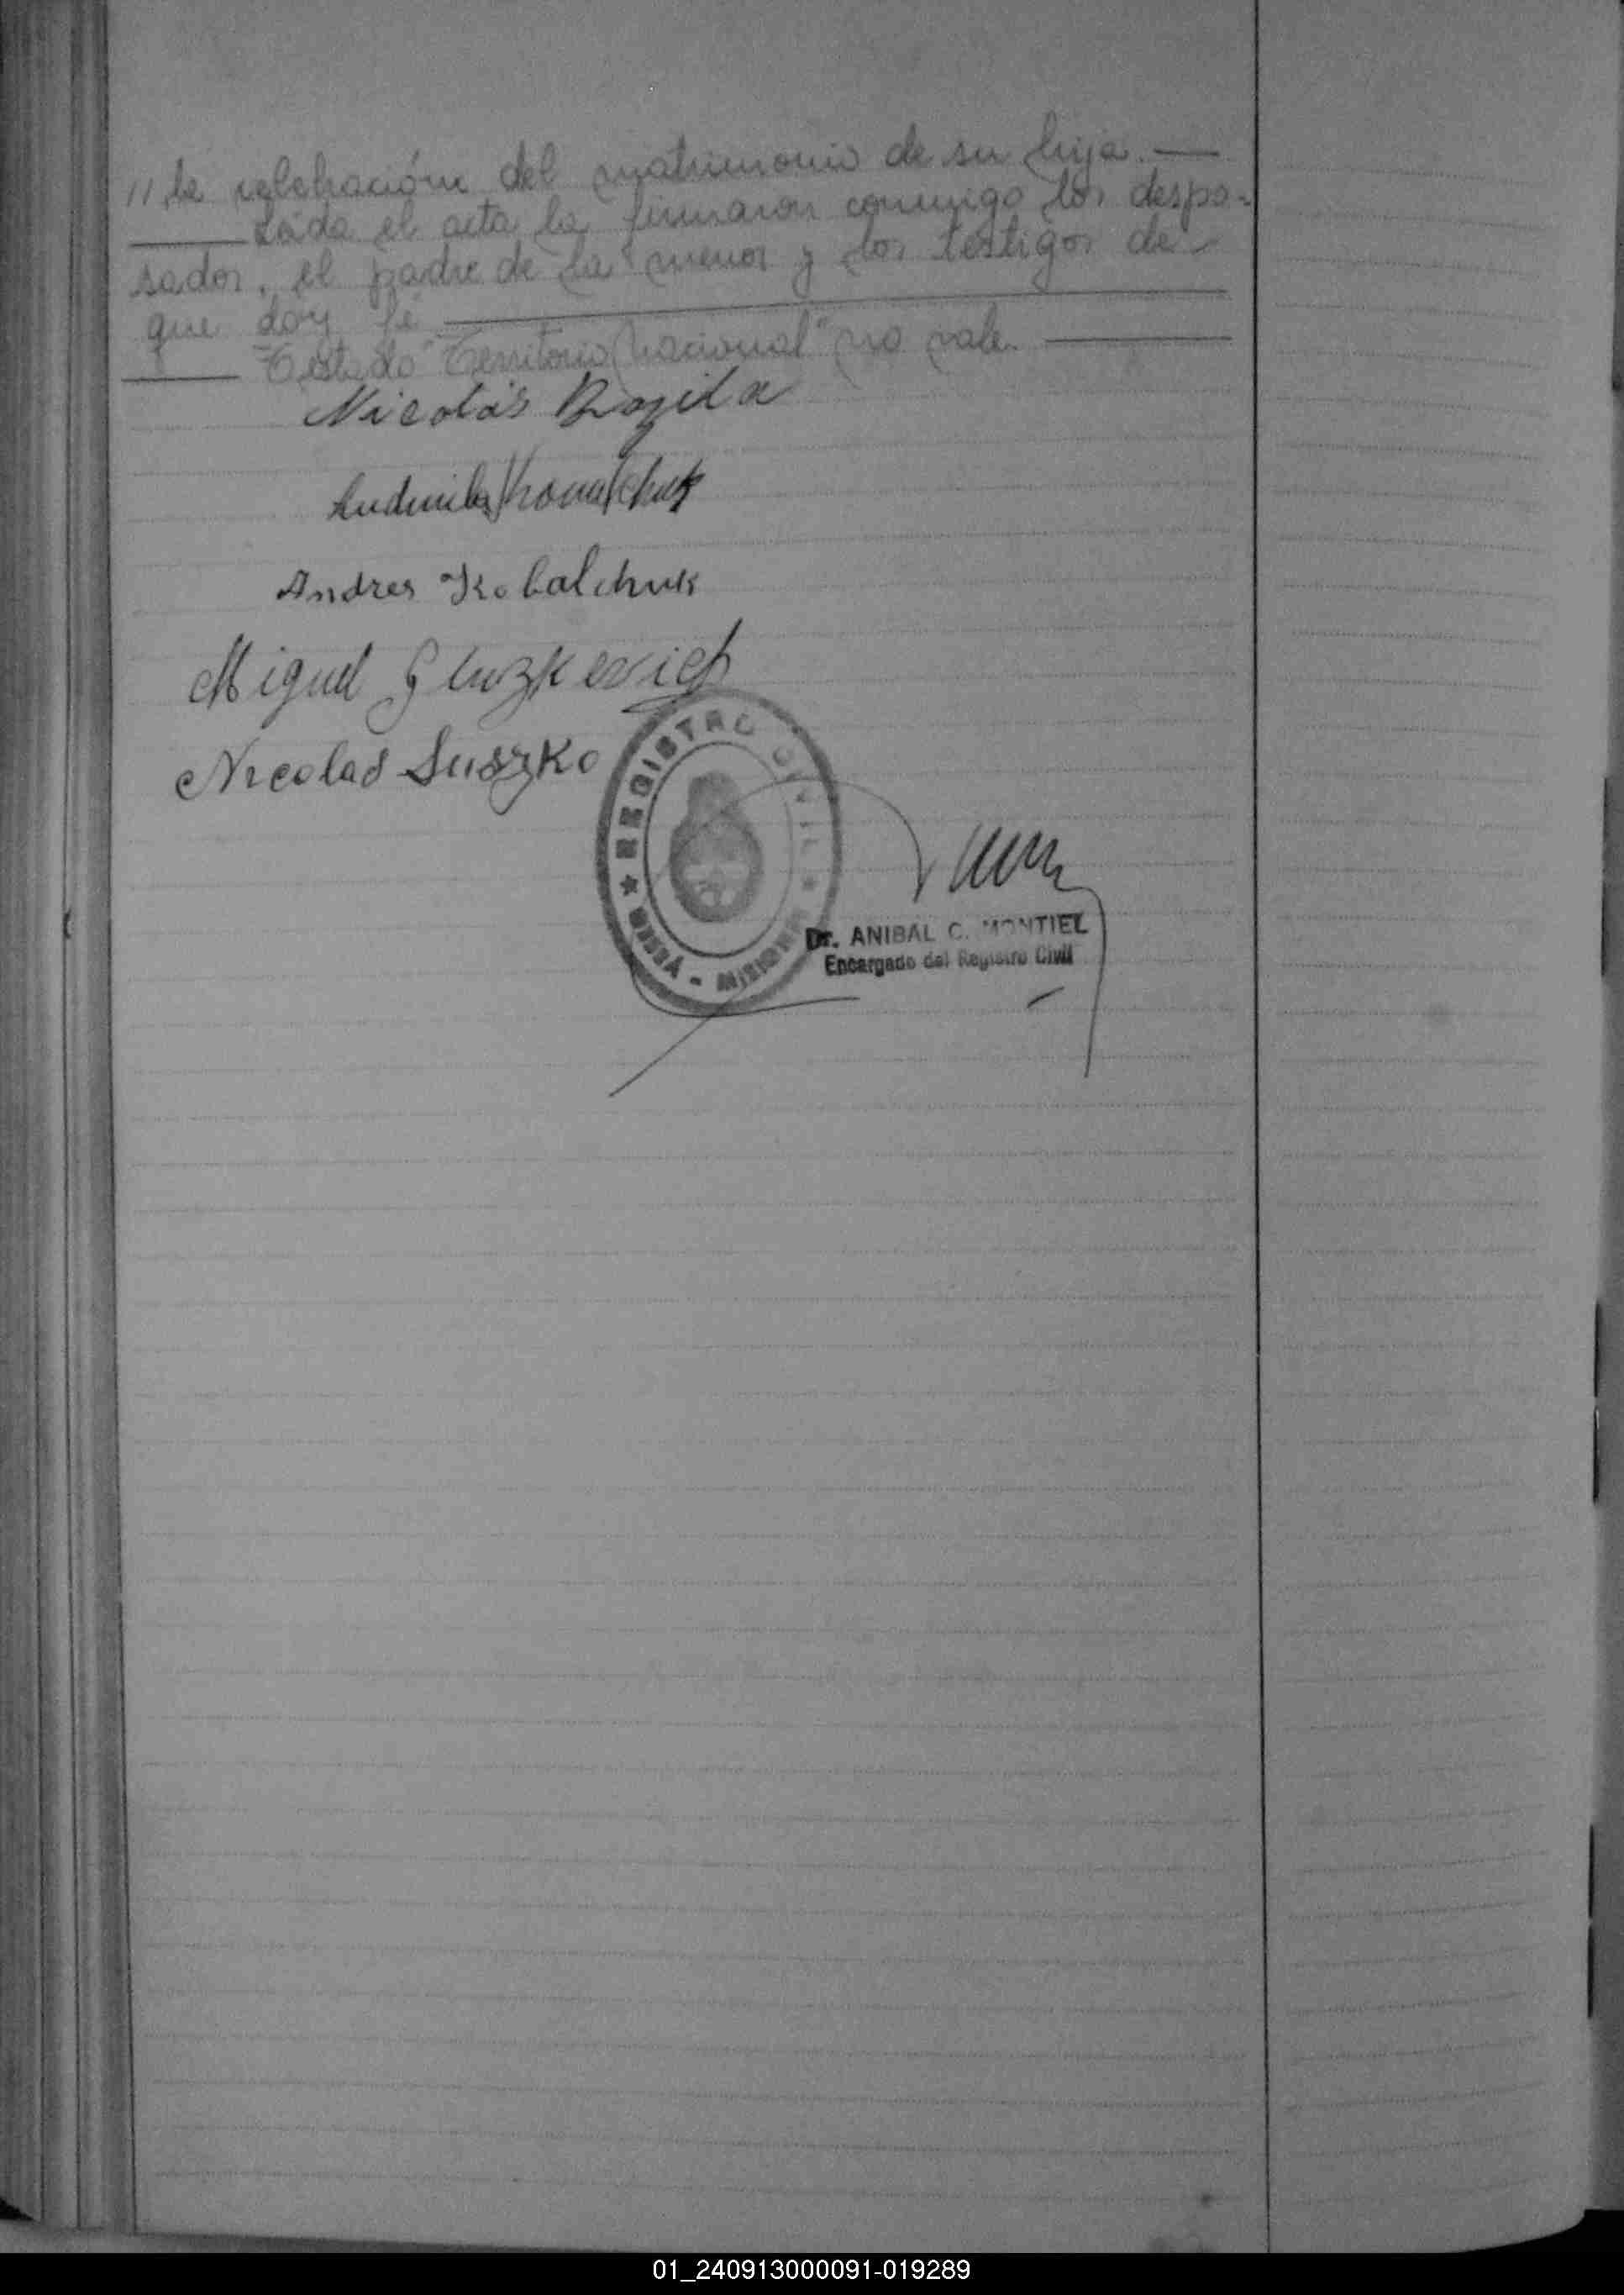 // la celebración del matrimonio de su hija. —
Leida el acta la firmaron conmigo los despo-
sados, el padre de la menor y los testigos de
que doy fé
Testado "Territorio Nacional" no vale.
Nicolás
Ludmila Kowalchuk
Andres Kobalchuk
Miguel Gluzkevich
Nicolas Suszko
REGISTRO CIVIL
MISIONES
Dr. ANIBAL C. MONTIEL
Encargado del Registro Civil
01_240913000091-019289